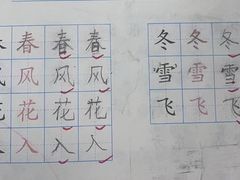 春 春 春 春
风 风 风 风
花 花 花 花
入 入 入 入
冬 冬 冬
雪 雪 雪
飞 飞 飞